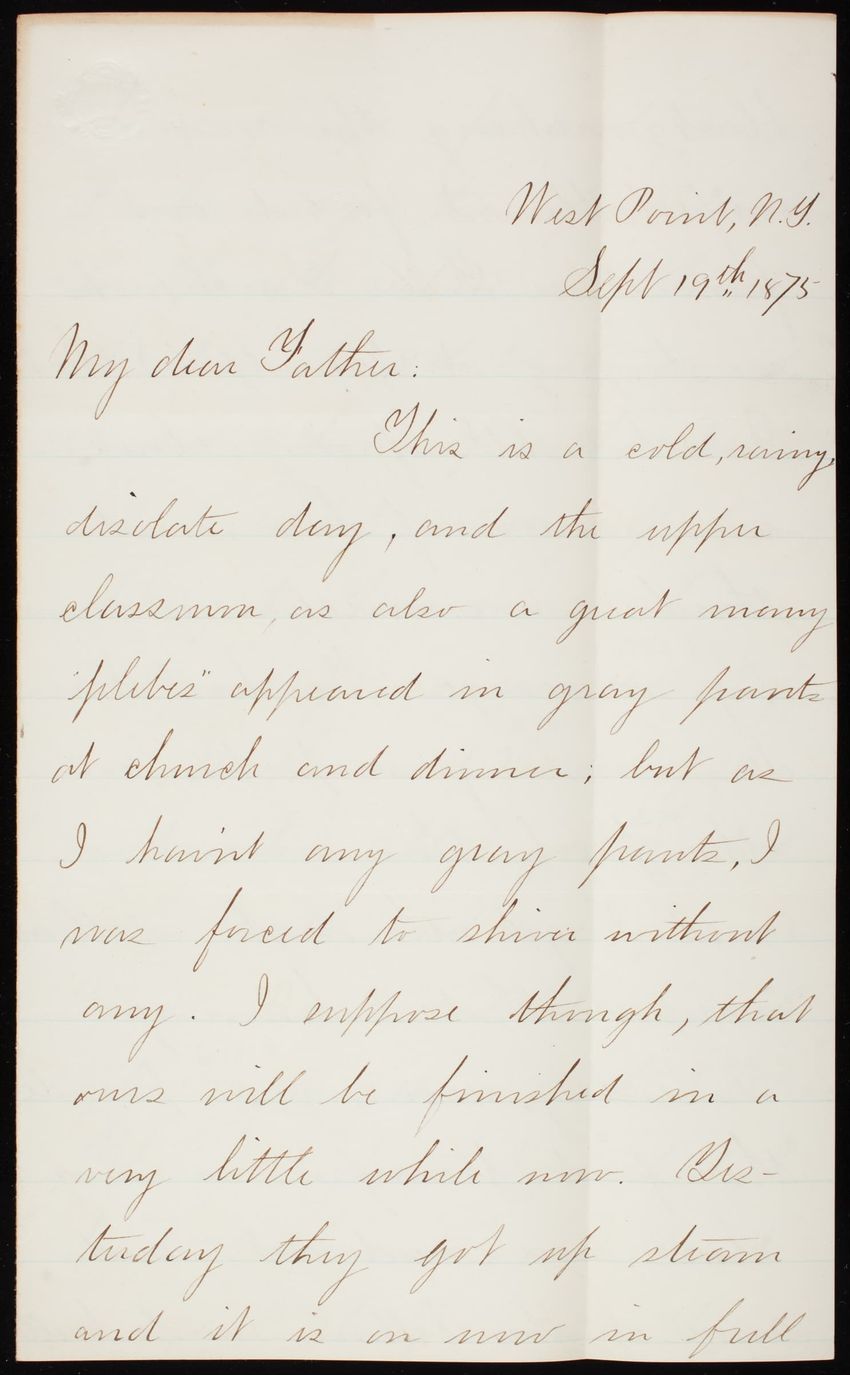 West Point, N.Y.
Sept 19th 1875
My dear Father:
This is a cold, rainy,
disolate day, and the upper
classmen, as also a great many
"plebes" appeared in gray pants
at church and dinner; but as
I havn't any gray pants, I
was forced to shiver without
any. I suppose though, that
ours will be finished in a
very little while now. Yes-
terday they got up steam
and it is on now in full